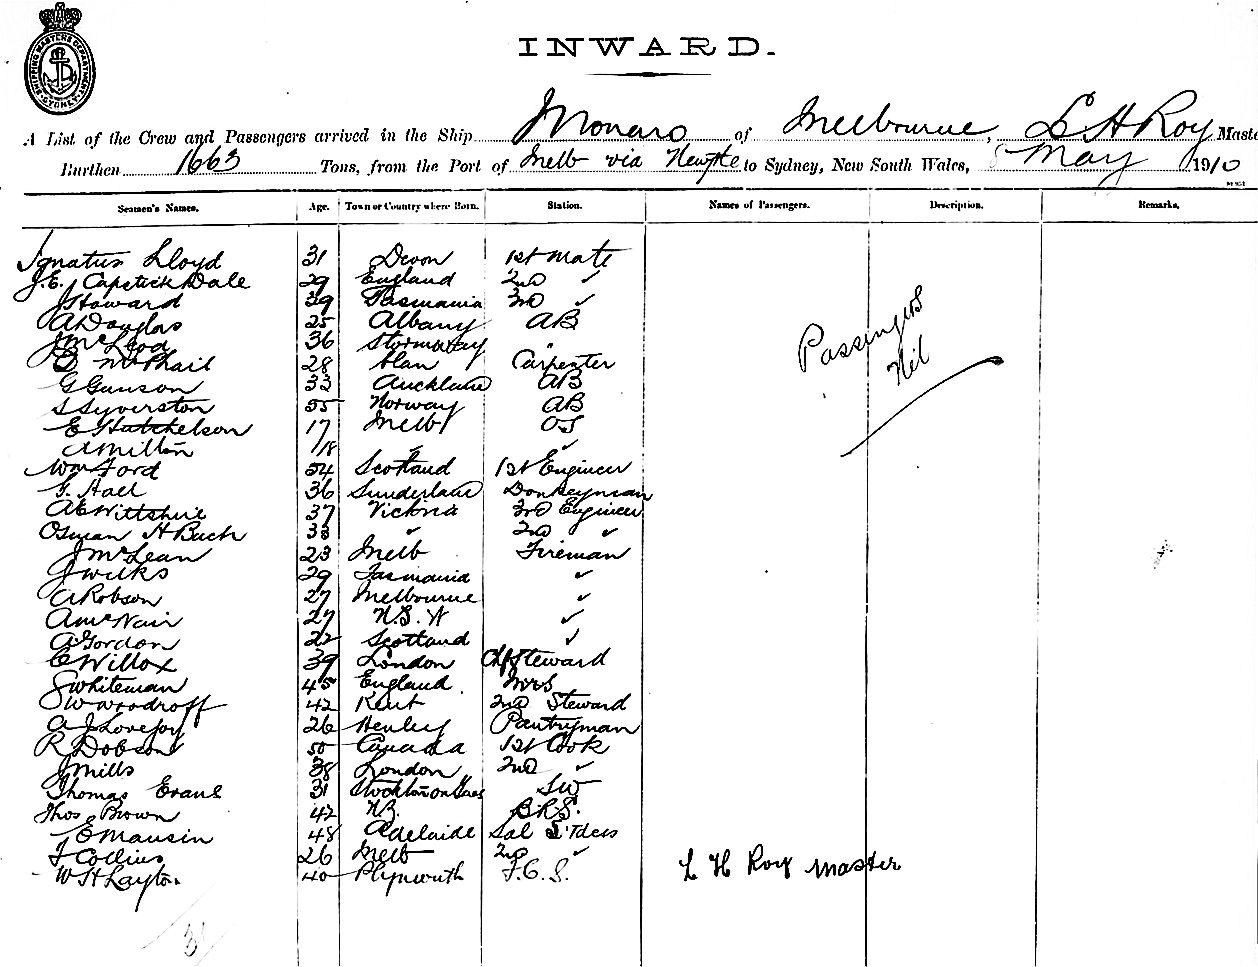 SHIPPING MASTERS DEPARTMENT
SYDNEY
INWARD.
A List of the Crew and Passengers arrived in the Ship Monaro of Melbourne, L H Roy Maste
Burthen 1663 Tons, from the Port of Melb via Newtle to Sydney, New South Wales, 8 May 1910
Seamen's Names. Age. Town or Country where Born. Station. Names of Passengers. Description. Remarks.
Ignatius Lloyd 31 Devon 1st Mate
J.E. Capstick Dale 29 England 2nd ✓
J Howard 39 Tasmania 3rd ✓
A Douglas 25 Albany AB
J McLeod 36 Stornoway "
D McPhail 28 Alan Carpenter
G Gunson 33 Auckland AB
S Syverston 55 Norway AB
E Hutchelson 17 Melb OS
A Milton 18 ✓ ✓
Wm Ford 54 Scotland 1st Engineer
G. Hall 36 Sunderland Donkeyman
A E Wiltshire 37 Victoria 3rd Engineer
Osman H Buch 33 ✓ 2nd ✓
J McLean 23 Melb Fireman
J Wilks 29 Tasmania ✓
A Robson 27 Melbourne ✓
A McNair 27 N.S.W ✓
A Gordon 22 Scotland ✓
E Willox 39 London Chf Steward
S Whiteman 45 England Mrs
S W Woodroff 42 Kent 2nd Steward
A J Lovejoy 26 Henley Pantryman
R Dobson 50 Canada 1st Cook
J Mills 38 London 2nd ✓
Thomas Evans 31 Stockton on Tees SW
Thos Brown 42 NZ. BRS.
E Mausin 48 Adelaide Sal S'tdess
J Collins 26 Melb 2nd ✓
W S H Layton. 40 Plymouth F.C.S.
Passengers
Nil
L H Roy Master